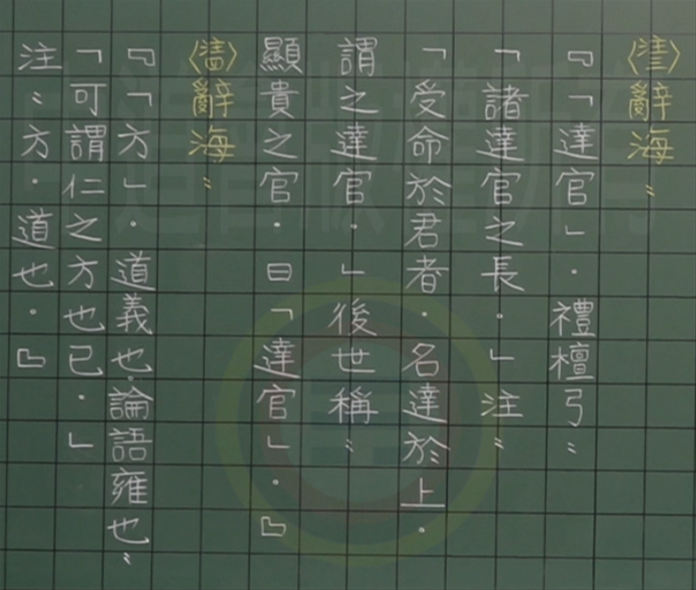 〈書〉辭海：
『「達官」．禮檀弓：
「諸達官之長．」注：
「受命於君者．名達於上．
謂之達官．」後世稱：
顯貴之官．曰「達官」．』
〈書〉辭海：
『「方」．道義也．論語雍也：
「可謂仁之方也已．」
注：方．道也．』